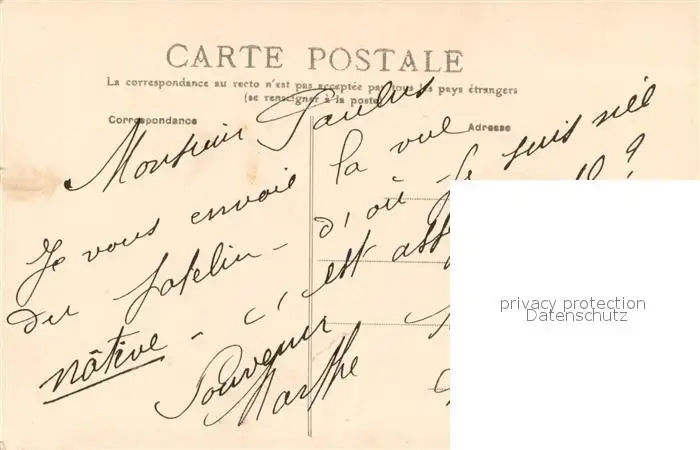 CARTE POSTALE
La correspondance au recto n'est pas acceptée par tous les pays étrangers
(se renseigner à la poste)
Correspondance
Adresse
Monsieur Paulus
Je vous envoie la vue
du - d'où je suis née
nâtive - c'est
Souvenir
Marthe
privacy protection
Datenschutz